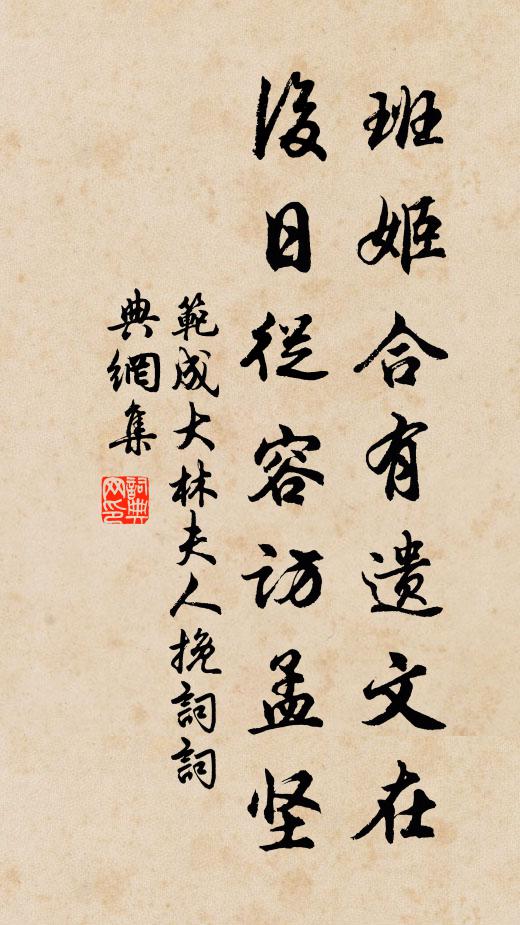 班姬合有遗文在
後日從容访孟坚
範成大林夫人挽詞詞
典網集
詞典网印